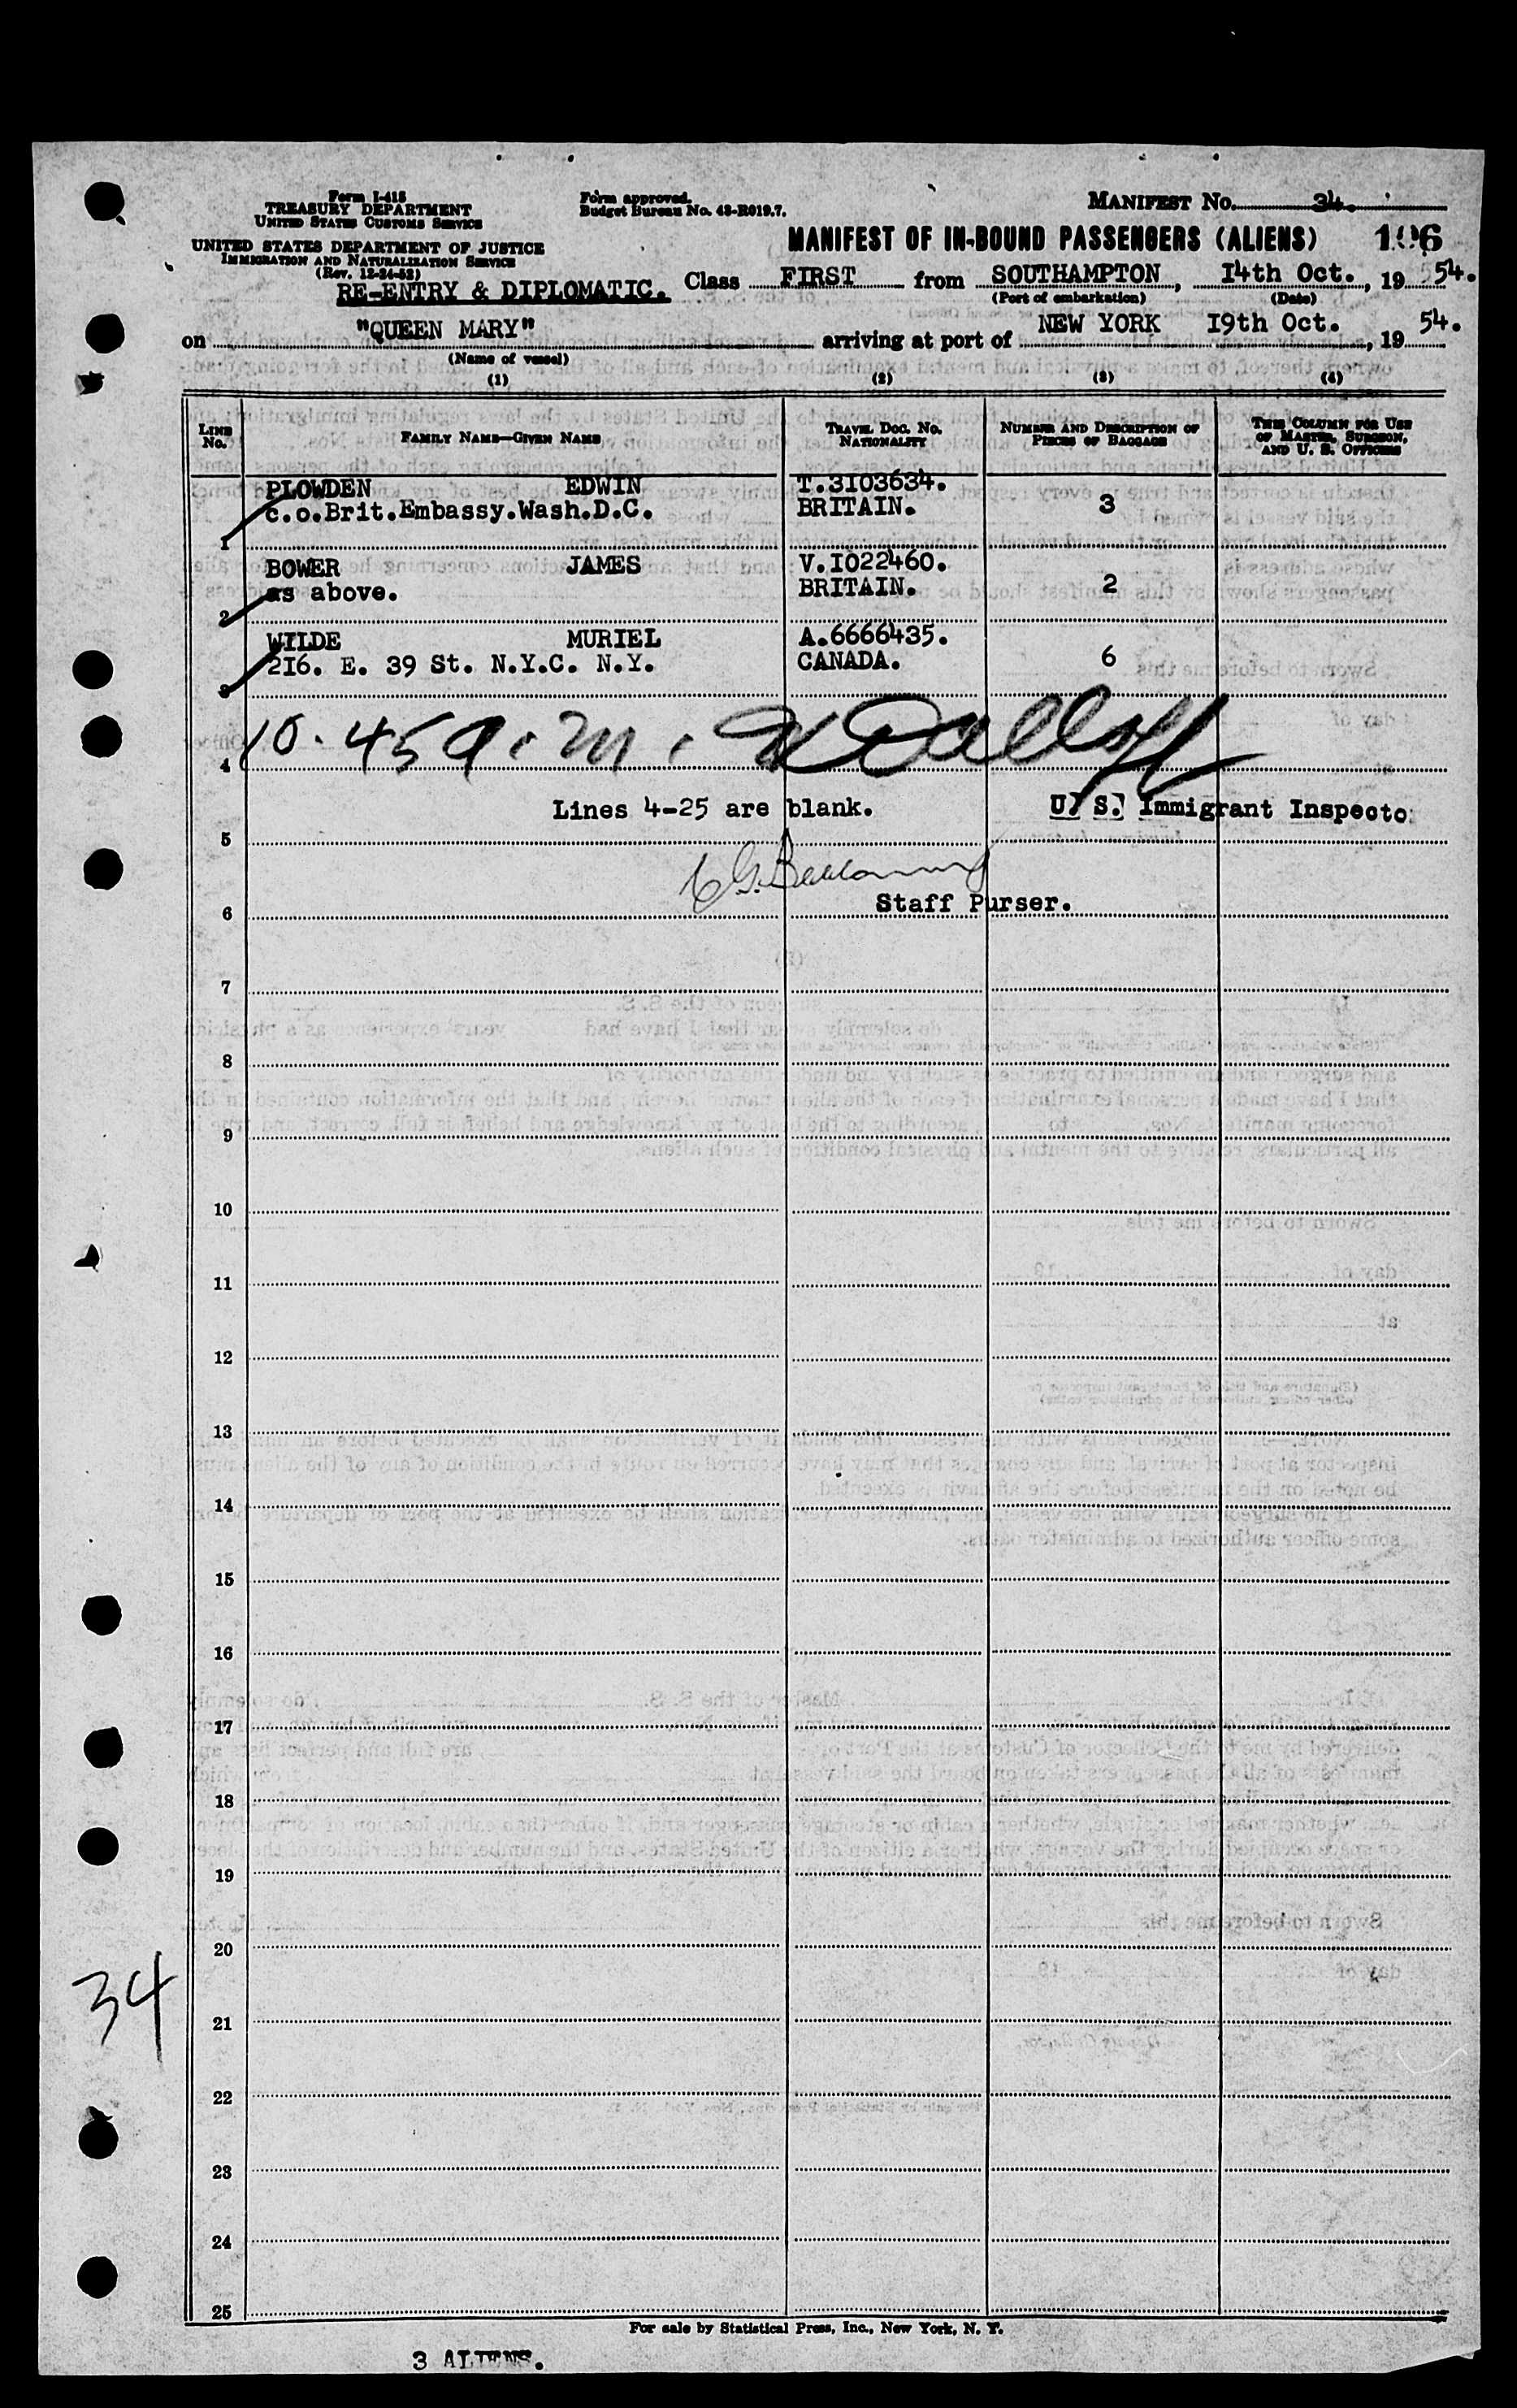 Form I-415
TREASURY DEPARTMENT
UNITED STATES CUSTOMS SERVICE
UNITED STATES DEPARTMENT OF JUSTICE
IMMIGRATION AND NATURALIZATION SERVICE
(Rev. 12-24-52)
Form approved.
Budget Bureau No. 43-R019.7.
MANIFEST NO. 34.
MANIFEST OF IN-BOUND PASSENGERS (ALIENS) 196
RE-ENTRY & DIPLOMATIC. Class FIRST from SOUTHAMPTON, I4th Oct., 19 54.
(Port of embarkation) (Date)
on "QUEEN MARY" arriving at port of NEW YORK I9th Oct. , 19 54.
(Name of vessel)
(1) (2) (3) (4)
LINE No. FAMILY NAME—GIVEN NAME TRAVEL DOC. NO. NATIONALITY NUMBER AND DESCRIPTION OF PIECES OF BAGGAGE THIS COLUMN FOR USE OF MASTER, SURGEON, AND U. S. OFFICERS
PLOWDEN EDWIN T.3I03634.
c.o.Brit.Embassy.Wash.D.C. BRITAIN. 3
1
BOWER JAMES V.I022460.
as above. BRITAIN. 2
2
WILDE MURIEL A.6666435.
2I6. E. 39 St. N.Y.C. N.Y. CANADA. 6
3
10.45 a.m.
4
Lines 4-25 are blank. U. S. Immigrant Inspecto
5
Staff Purser.
6
7
8
9
10
11
12
13
14
15
16
17
18
19
20
34
21
22
23
24
25
For sale by Statistical Press, Inc., New York, N. Y.
3 ALIENS.